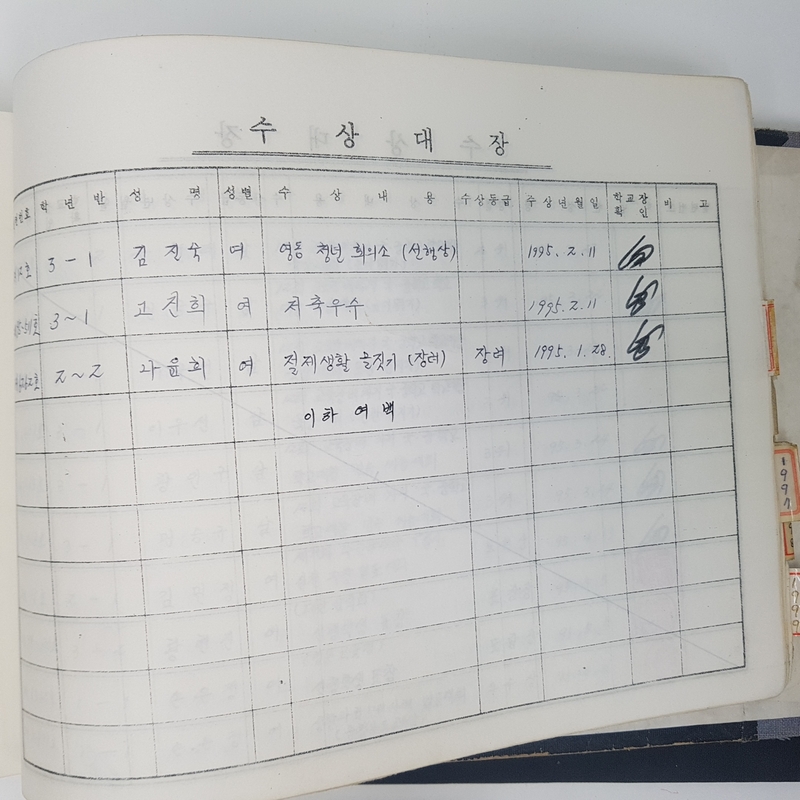 수 상 대 장
학 년 반 성 명 성별 수 상 내 용 수상등급 수 상 년 월 일 학교장 확 인 비 고
3-1 김진숙 여 영동 청년 회의소 (선행상) 1995. 2. 11
3~1 고진희 여 저축우수 1995. 2. 11
2~2 나윤희 여 절제생활 글짓기 (장려) 장려 1995. 1. 28.
이하 여백
1997
1999